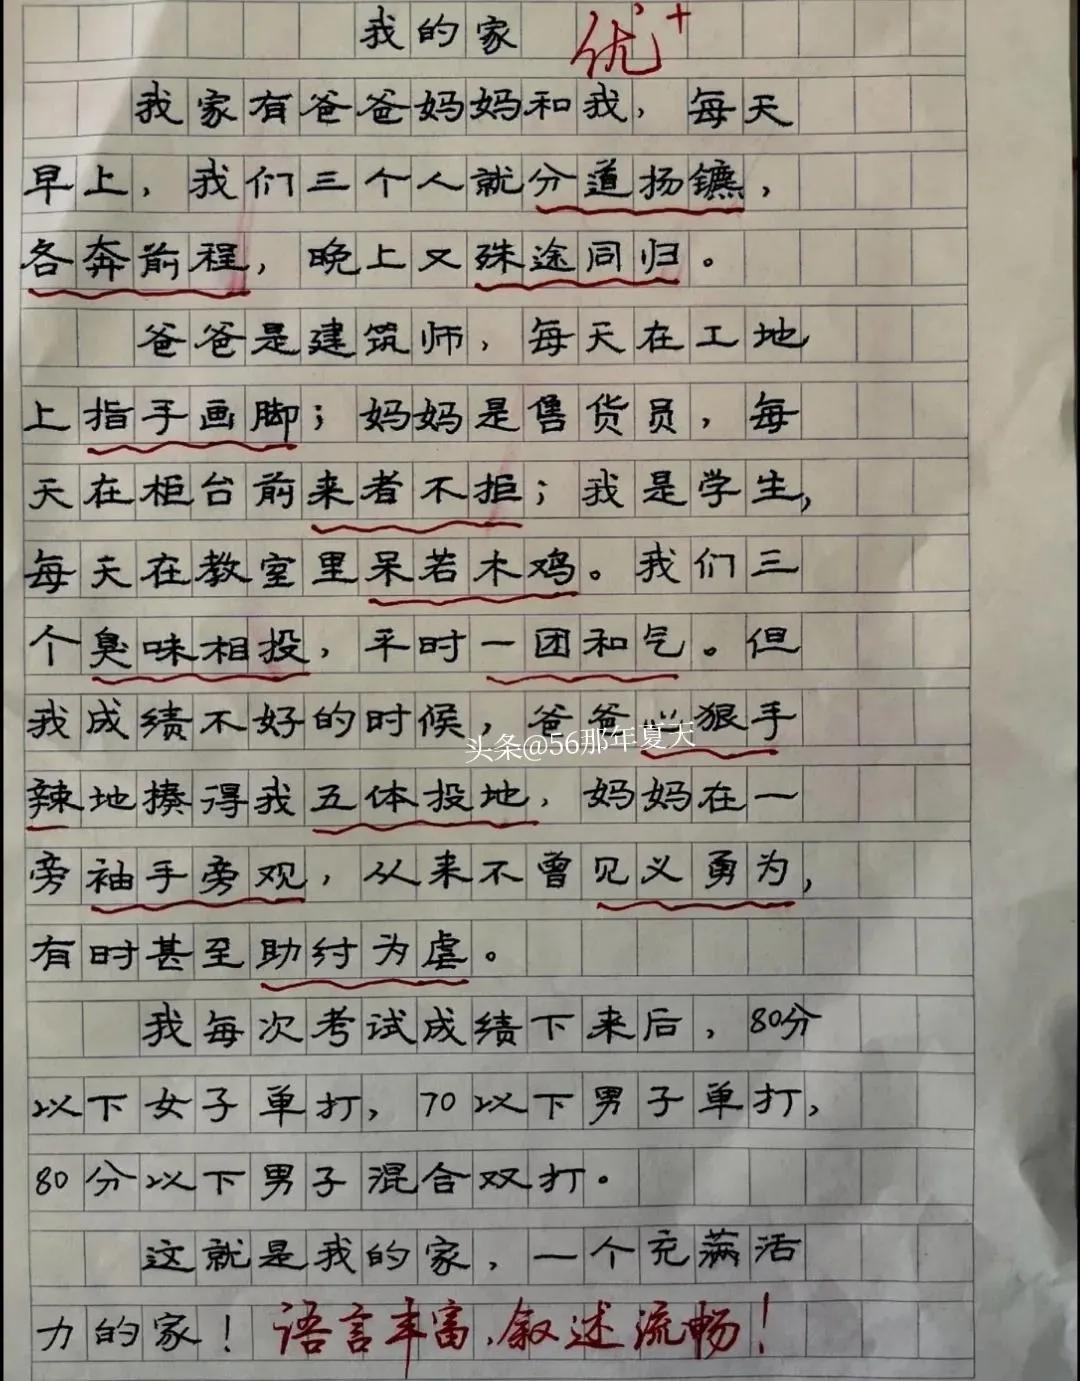 我的家 优+
我家有爸爸妈妈和我，每天
早上，我们三个人就分道扬镳，
各奔前程，晚上又殊途同归。
爸爸是建筑师，每天在工地
上指手画脚；妈妈是售货员，每
天在柜台前来者不拒；我是学生，
每天在教室里呆若木鸡。我们三
个臭味相投，平时一团和气。但
我成绩不好的时候，爸爸心狠手
头条@56那年夏天
辣地揍得我五体投地，妈妈在一
旁袖手旁观，从来不曾见义勇为，
有时甚至助纣为虐。
我每次考试成绩下来后，80分
以下女子单打，70以下男子单打，
80分以下男子混合双打。
这就是我的家，一个充满活
力的家！语言丰富、叙述流畅！